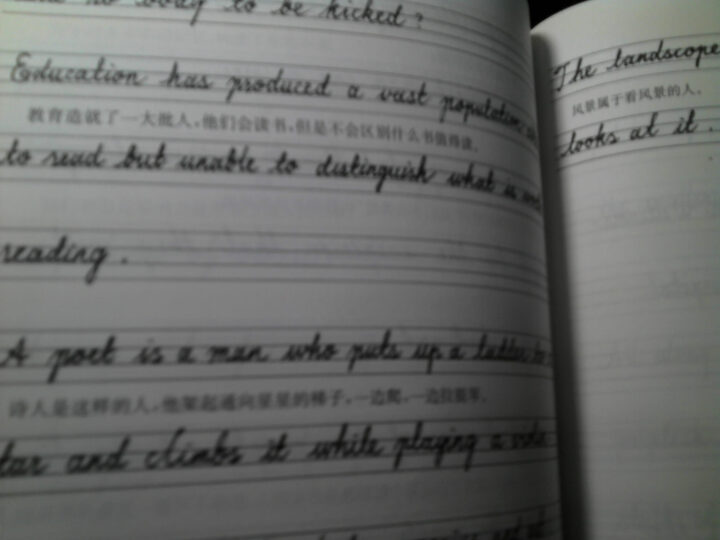 no body to be kicked ?
Education has produced a vast population
教育造就了一大批人，他们会读书，但是不会区别什么书值得读。
to read but unable to distinguish what is
reading .
A poet is a man who puts up a ladder to
诗人是这样的人，他架起通向星星的梯子，一边爬，一边拉提琴。
tar and climbs it while playing a
The landscape
风景属于看风景的人。
looks at it .